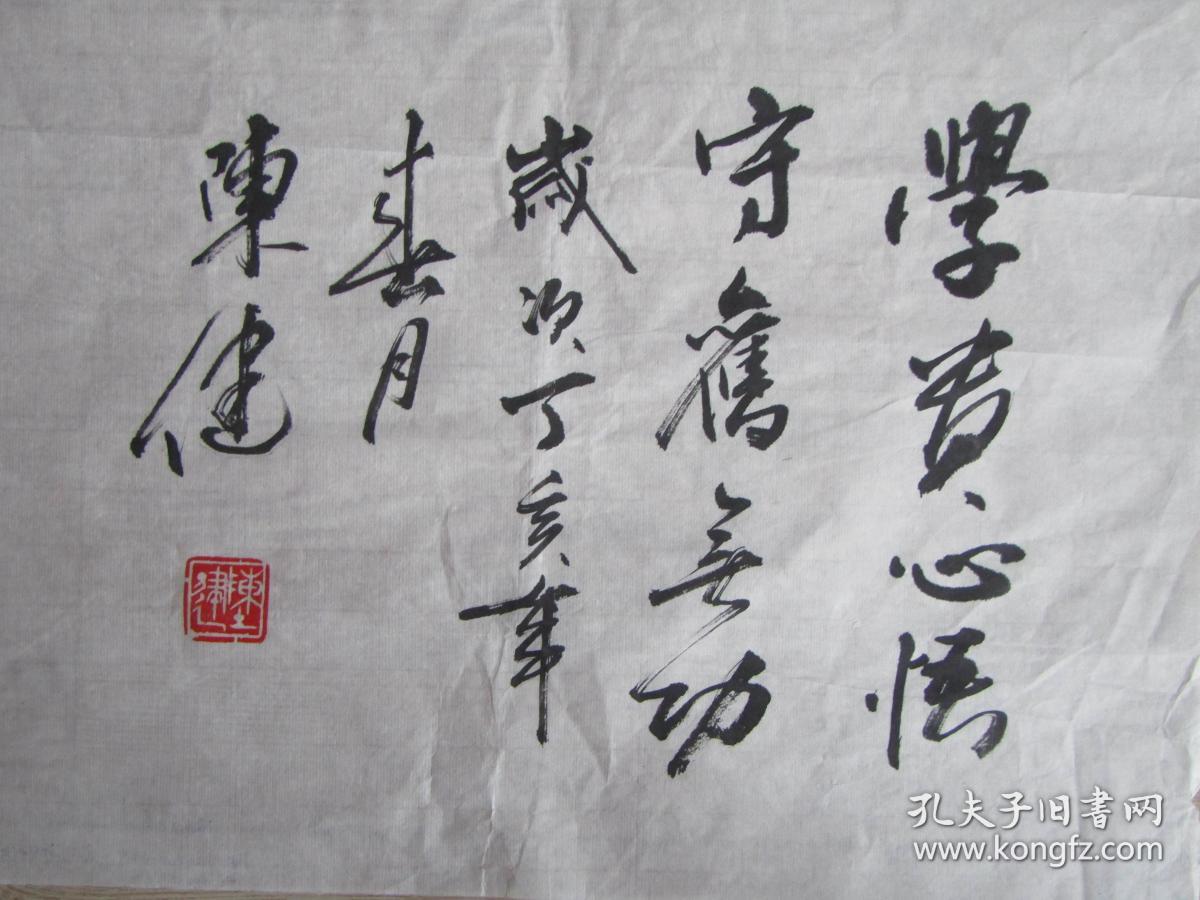 學貴心悟
守舊無功
歲次丁亥年
春月
陳健
陳健
孔夫子旧書网
www.kongfz.com